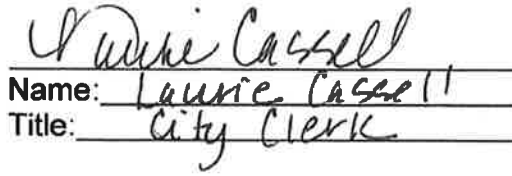 Laurie Cassell
Name: Laurie Cassell
Title: City Clerk